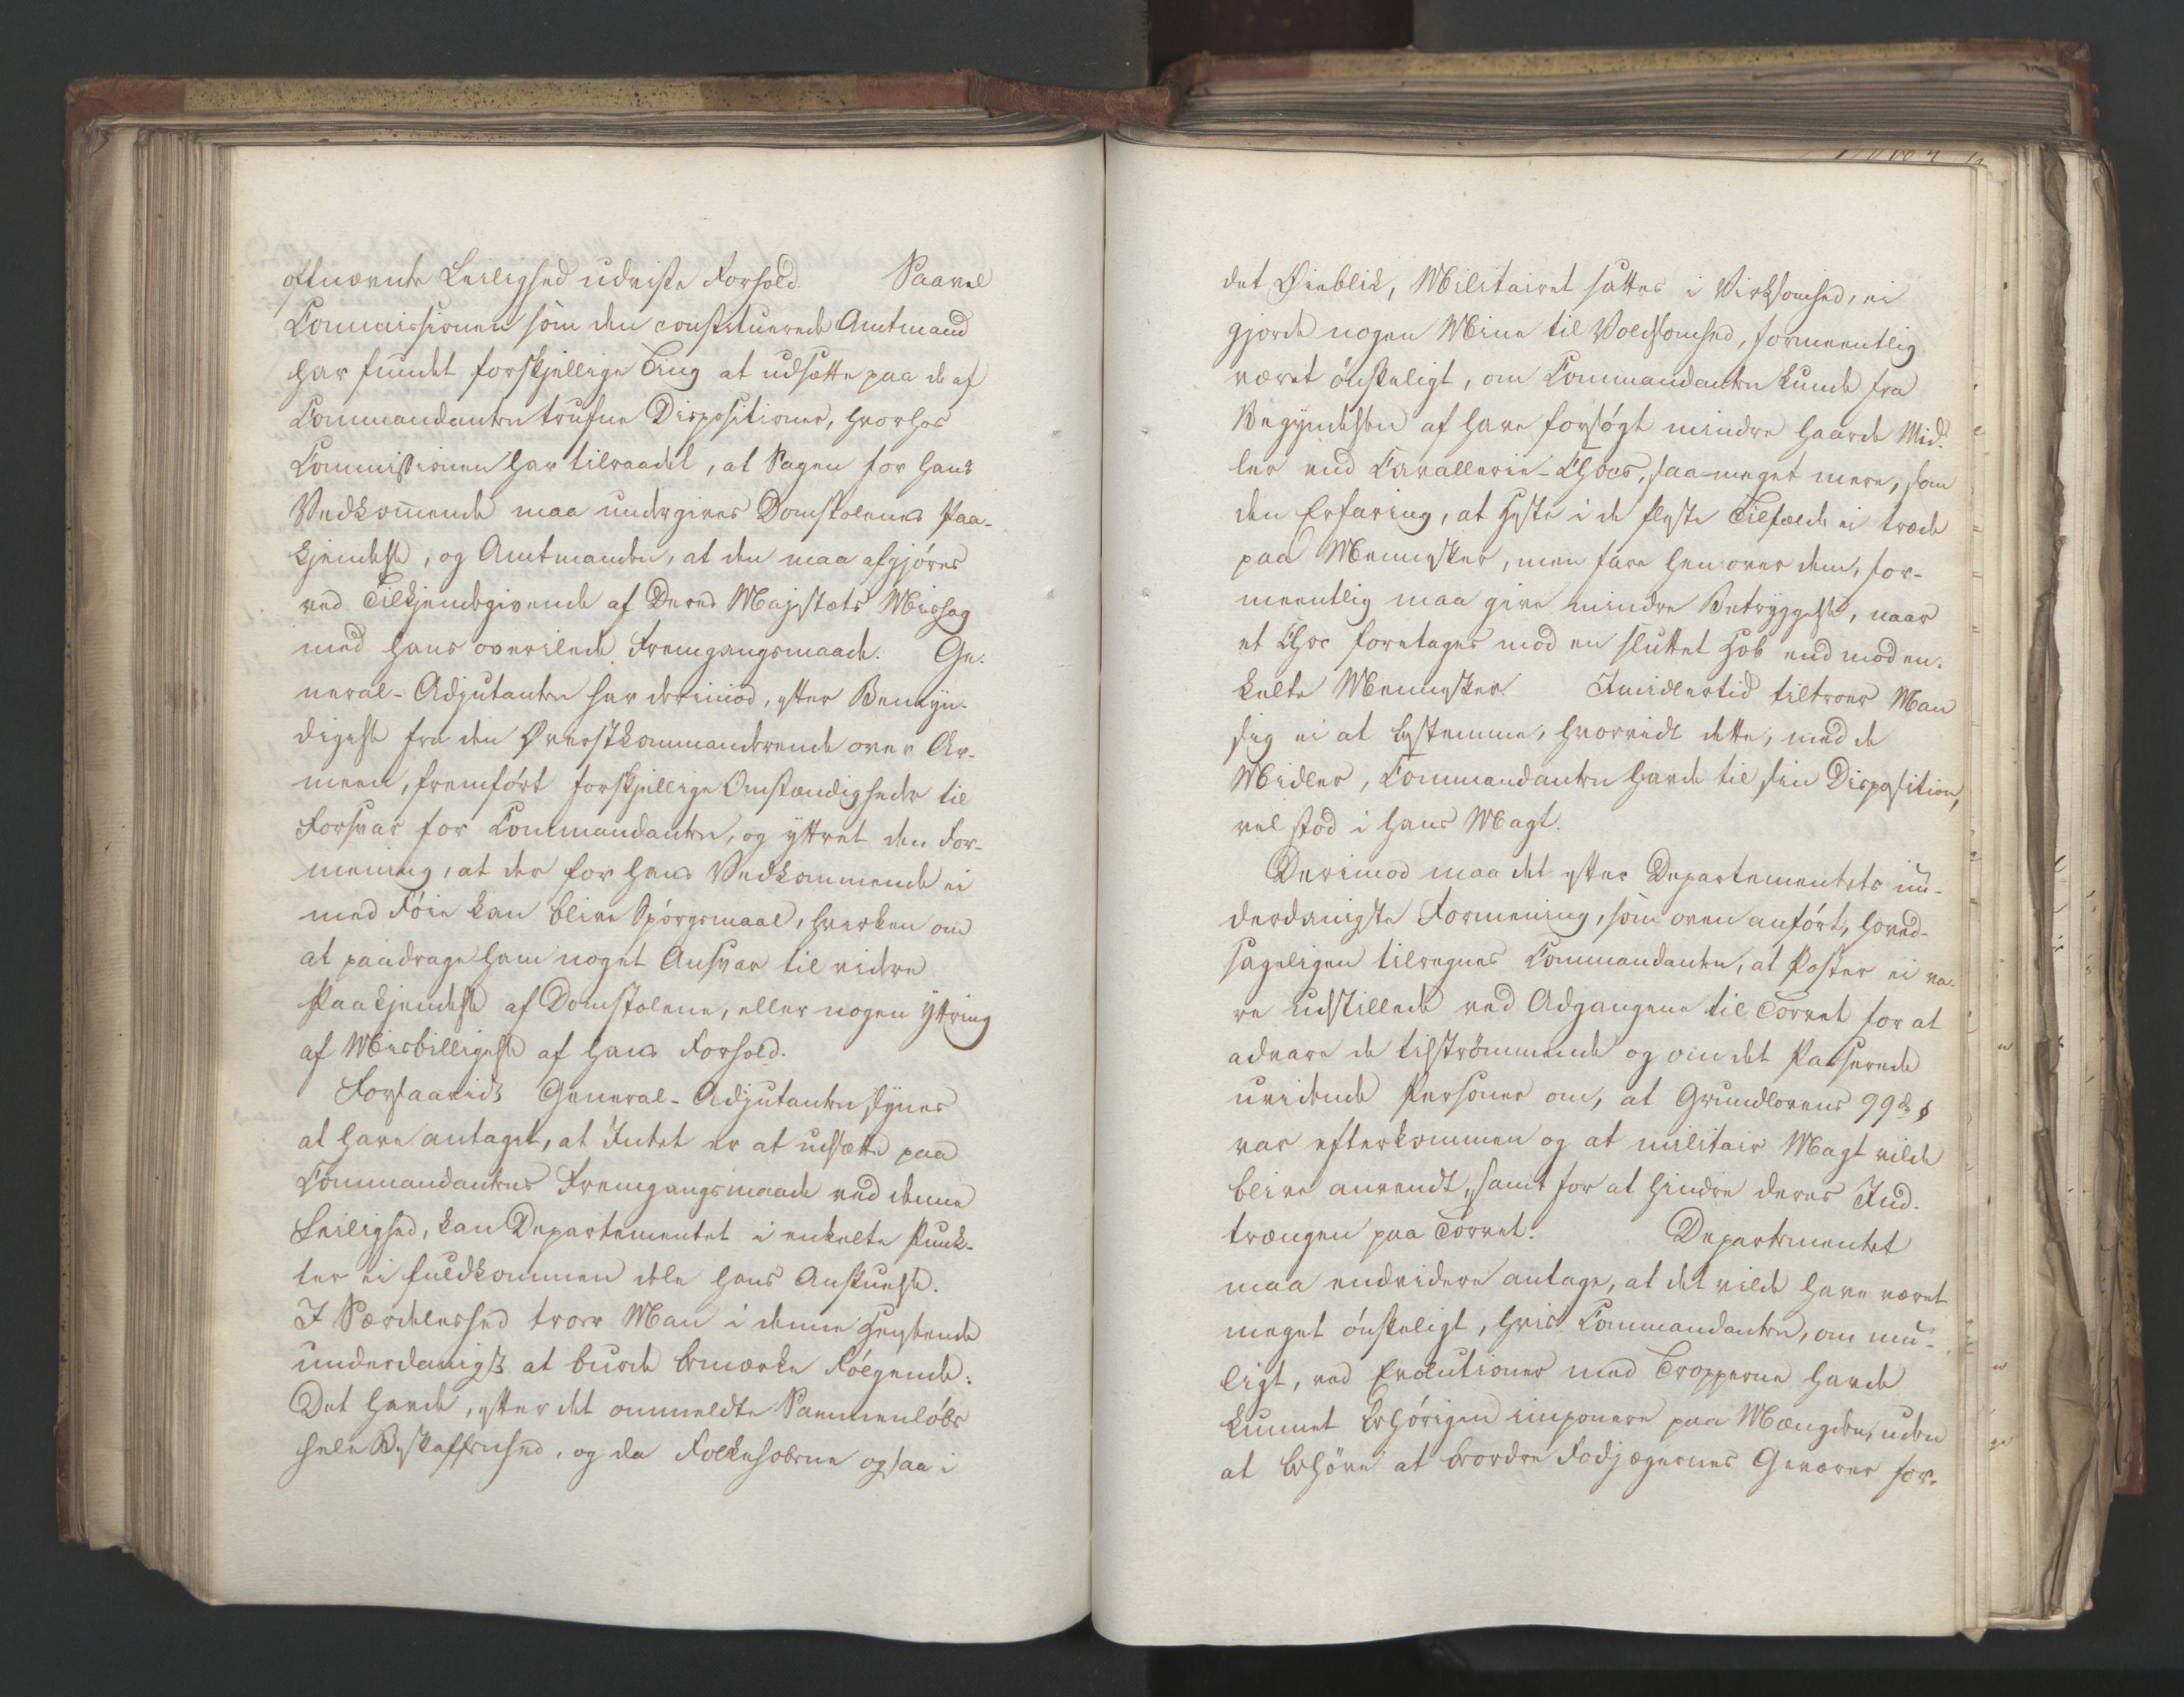 oftnævnte Leilighed udviste Forhold. Saavel
Commissionen som den constituerede Amtmand
har fundet forskjellige Ting at udsætte paa de af
Commandanten trufne Dispositioner, hvorhos
Commissionen har tilraadet, at Sagen for hans
Vedkommende maa undergives Domstolenes Paa-
kjendelse, og Amtmanden, at den maa afgjöres
ved Tilkjendegivende af Deres Majestæts Mishag
med hans overilede Fremgangsmaade. Ge-
neral-Adjutanten har derimod, efter Bemyn-
digelse fra den Øverstkommanderende over Ar-
meen, fremfört forskjellige Omstændigheder til
Forsvar for Commandanten, og yttret den For-
mening, at der for hans Vedkommende ei
med Föie kan blive Spörgsmaal, hverken om
at paadrage ham noget Ansvar til videre
Paakjendelse af Domstolene, eller nogen Yttring
af Misbilligelse af hans Forhold.
Forsaavidt General-Adjutanten synes
at have antaget, at Intet er at udsætte paa
Commandantens Fremgangsmaade ved denne
Leilighed, kan Departementet i enkelte Punk-
ter ei fuldkommen dele hans Anskuelse.
I Særdeleshed troer Man i denne Henseende
underdanigst at burde bemærke Fölgende:
Det havde, efter det ommeldte Sammenlöbs
hele Beskaffenhed, og da Folkehobene ogsaa i
det Øieblik, Militairet sattes i Virksomhed, ei
gjorde nogen Mine til Voldsomhed, formeentlig
været önskeligt, om Commandanten kunde fra
Begyndelsen af have forsögt mindre haarde Mid-
ler end Cavallerie-Chocs, saameget mere, som
den Erfaring, at Heste i de fleste Tilfælde ei træde
paa Mennesker, men fare hen over dem, for-
meentlig maa give mindre Betryggelse, naar
et Choc foretages mod en sluttet Hob end mod en-
kelte Mennesker. Imidlertid tiltroer Man
sig ei at bestemme, hvorvidt dette, med de
Midler, Commandanten havde til sin Disposition,
vel stod i hans Magt.
Derimod maa det efter Departementets un-
derdanigste Formening, som oven anfört, hoved-
sageligen tilregnes Commandanten, at Poster ei va-
re udstillede ved Adgangene til Torvet for at
advare de tilströmmende og om det Passerede
uvidende Personer om, at Grundlovens 99de §
var efterkommen og at militair Magt vilde
blive anvendt, samt for at hindre deres Ind-
trængen paa Torvet. Departementet
maa endvidere antage, at det vilde have været
meget önskeligt, hvis Commandanten, om mu-
ligt, ved Evolutioner med Tropperne havde
kunnet behörigen imponere paa Mængden, uden
at behöve at beordre Fodjægernes Geværer for-